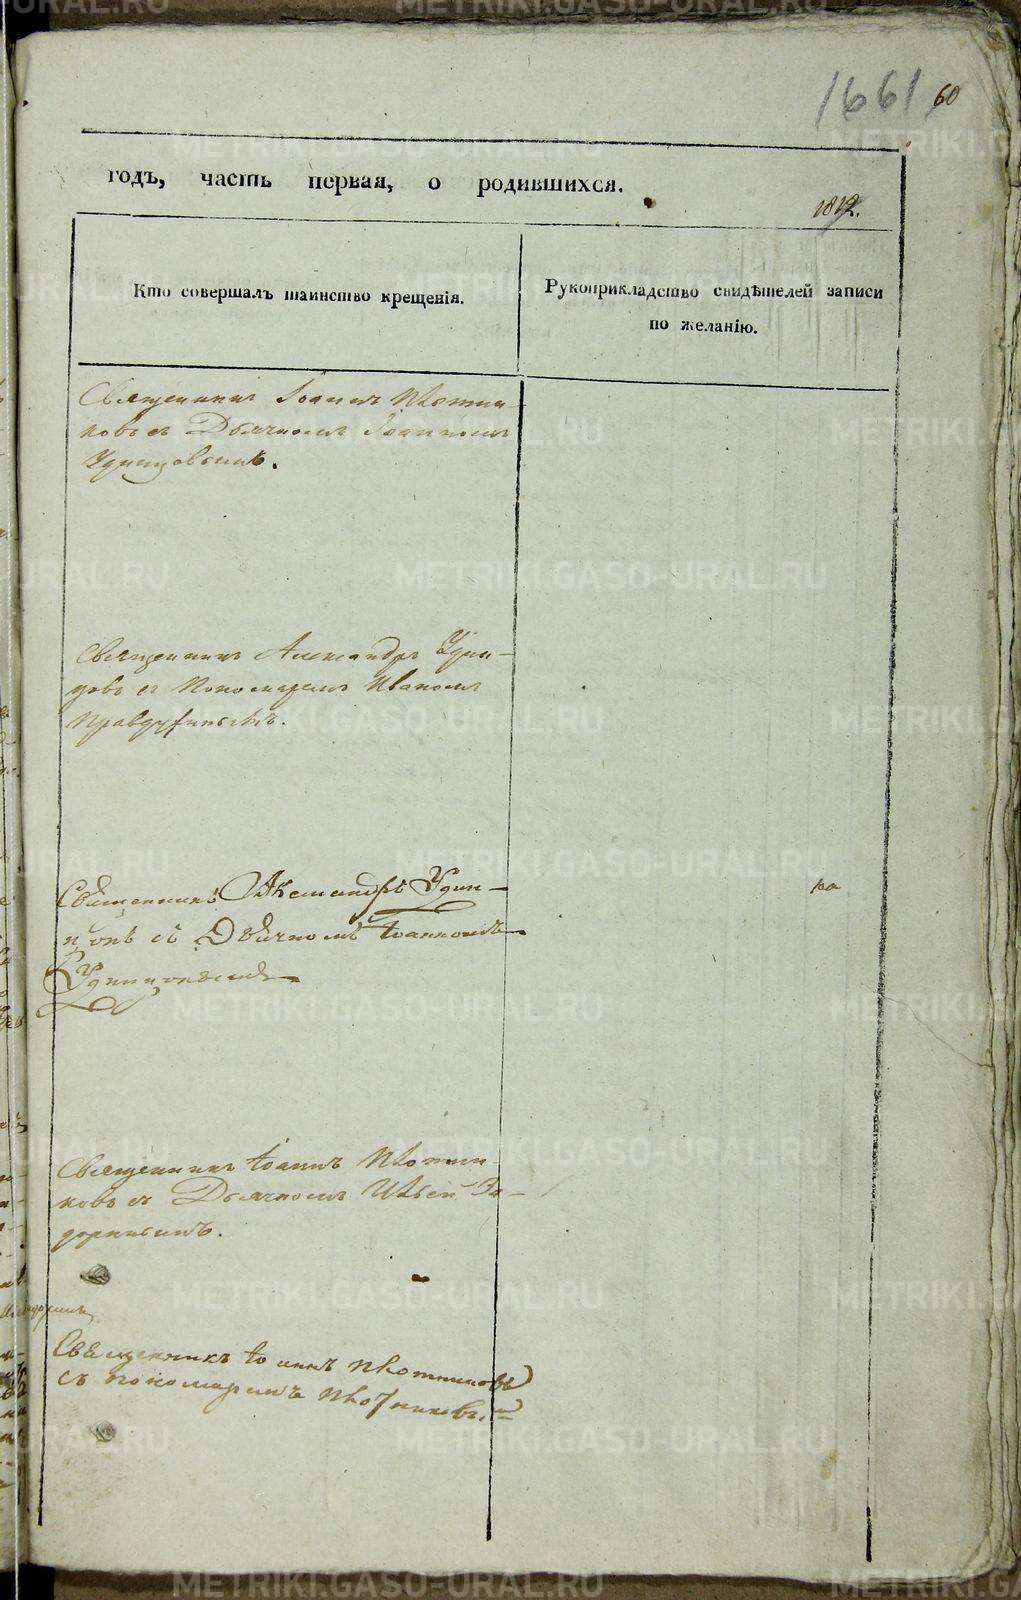 1661 60
годъ, часть первая, о родившихся.
Кто совершалъ таинство крещенія.
Рукоприкладство свидѣтелей записи
по желанію.
Священникъ Іоаннъ Плотни-
ковъ съ Дьячкомъ Іоанномъ
Удинцовымъ.
Священникъ Александръ Удин-
цовъ съ Пономаремъ Иваномъ
Правдухинымъ.
Священникъ Александръ Удин-
цовъ съ Дьячкомъ Іоанномъ
Удинцовымъ
Священникъ Іоаннъ Плотни-
ковъ съ Дьячкомъ
Священникъ Іоаннъ Плотниковъ
съ пономаремъ Плотниковы.
METRIKI.GASO-URAL.RU